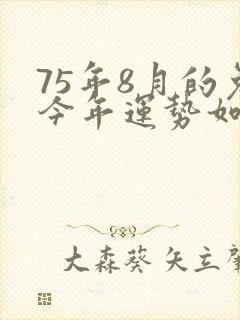 75年8月的兔
今年運勢如
大森葵 矢立肇